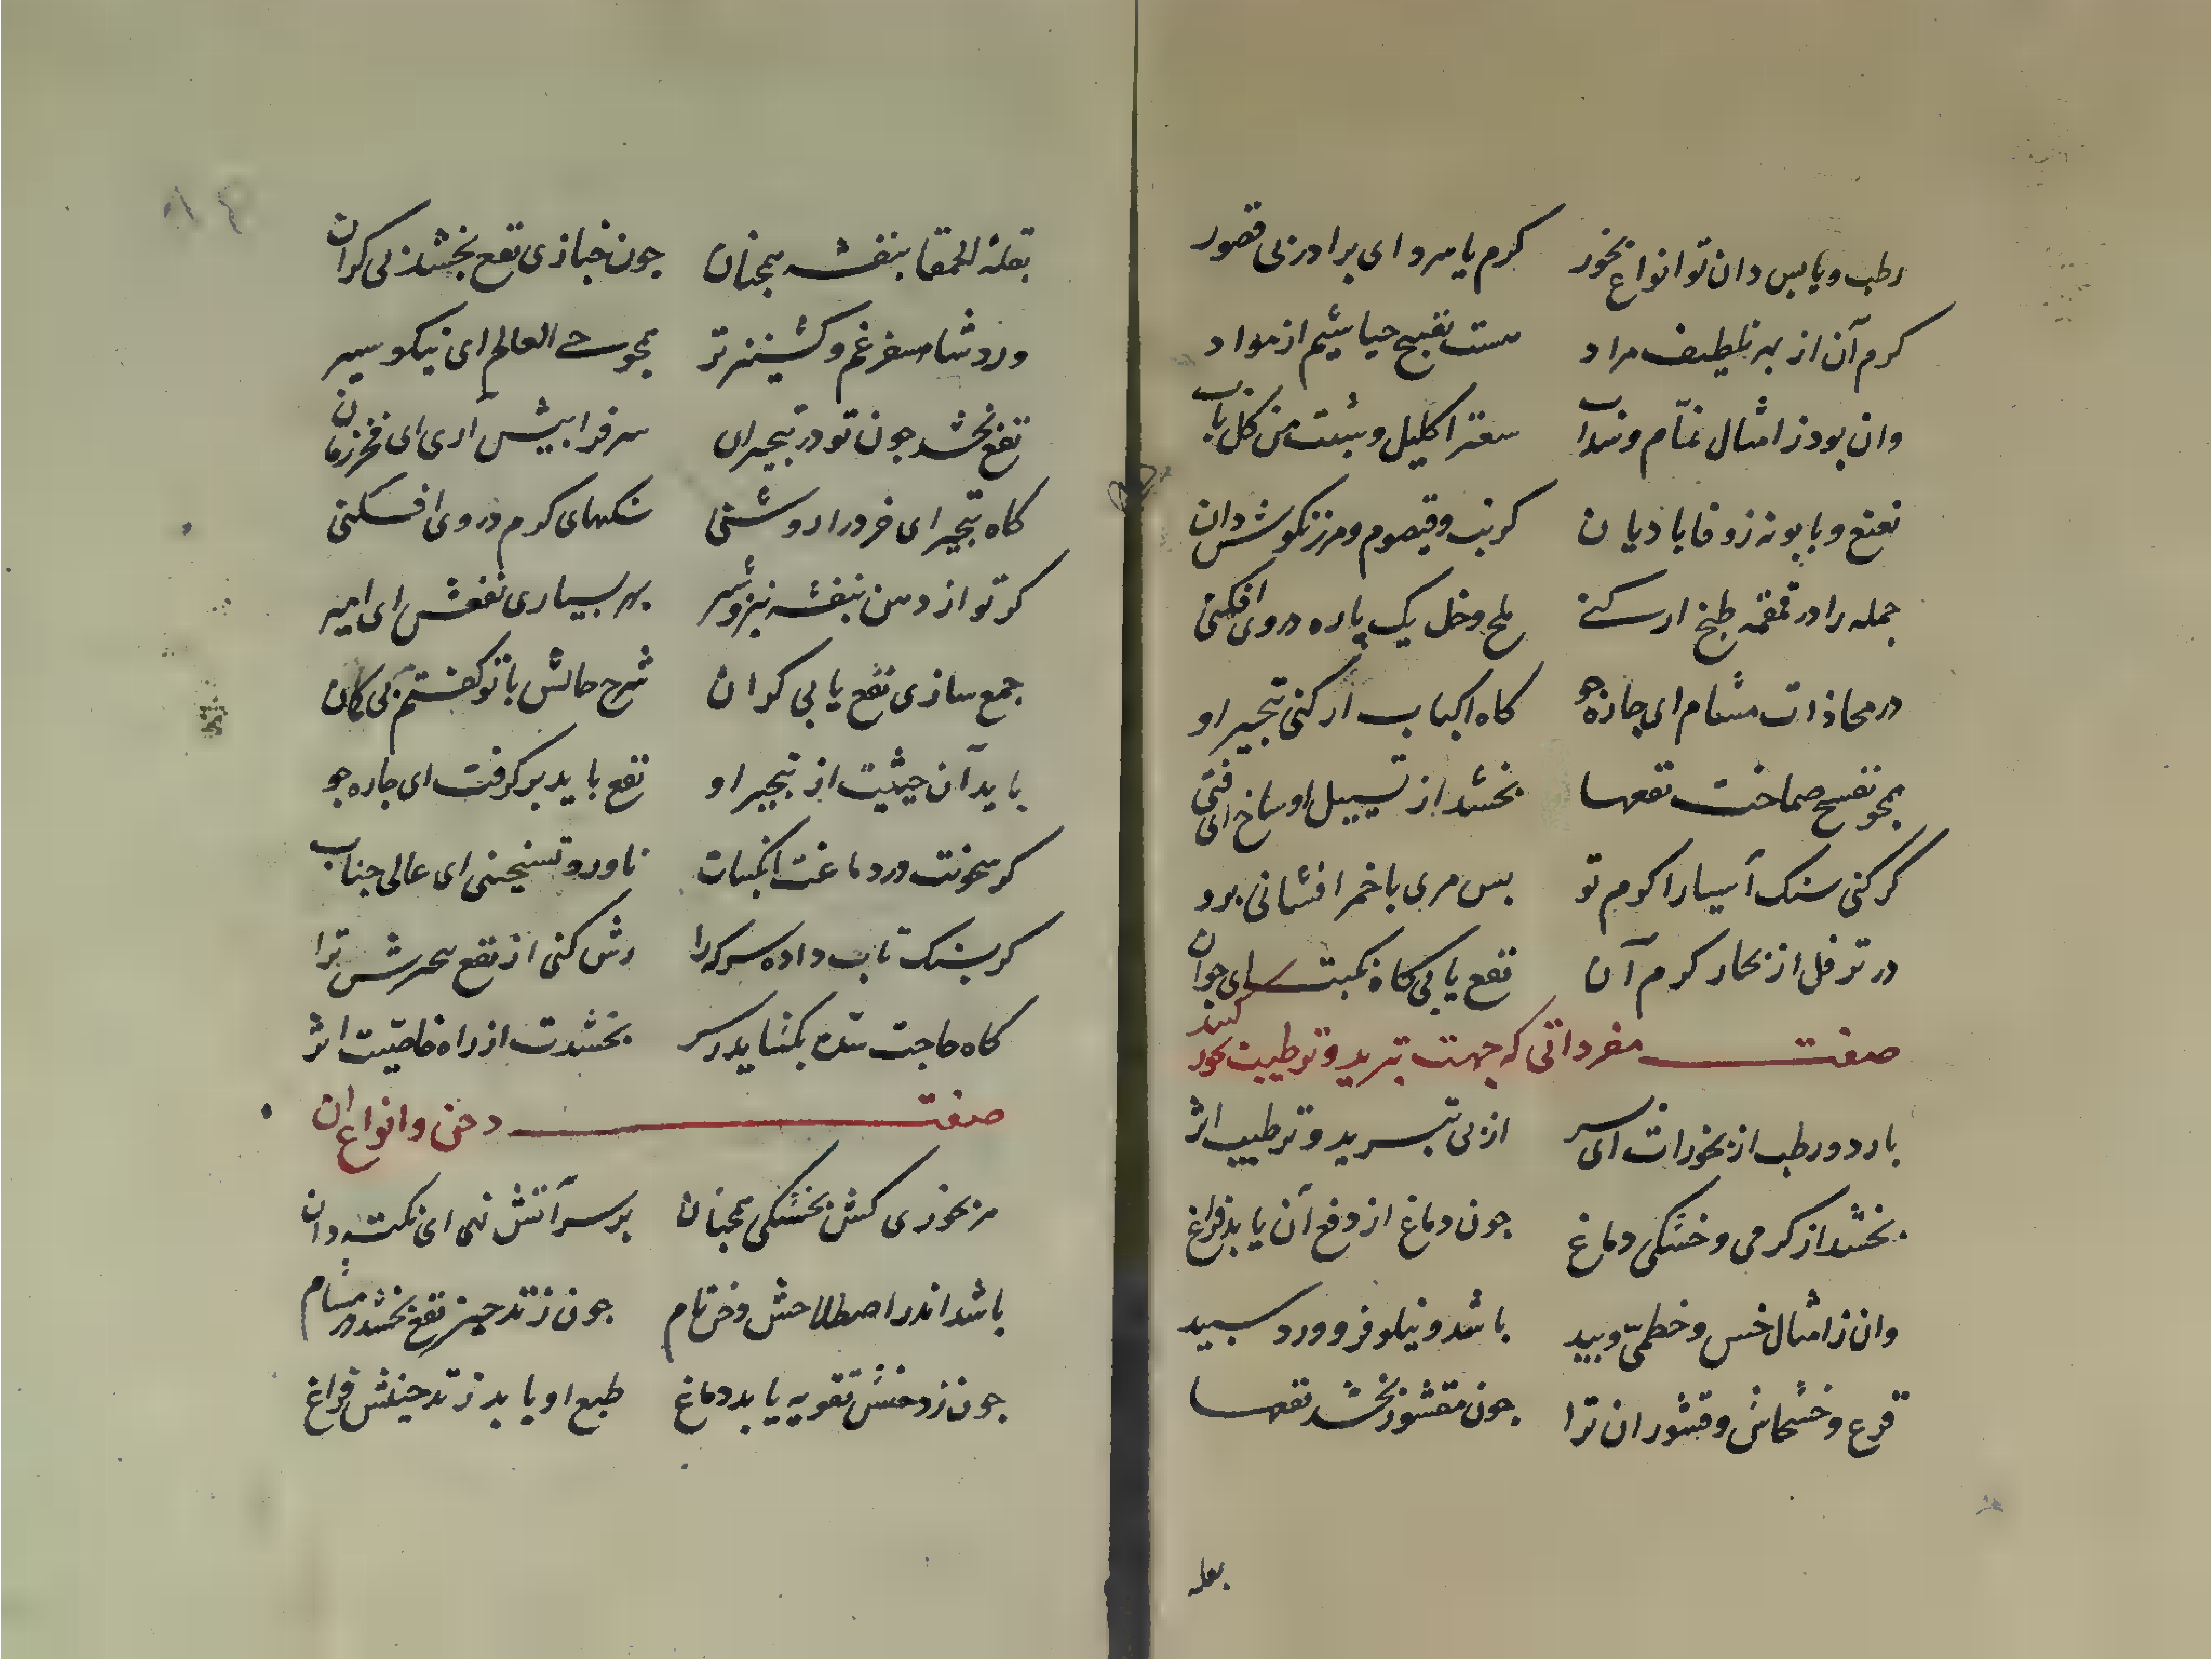 رطب و یابس دان تو انواع بخور کرم یا سرد ای برادر بی قصور
کرم آن از بهر تلطیف مراد هست تفتیح خیاشیم از مواد
وان بود ز امثال نمّام و سداب سعتر اکلیل و شبت من کل باب
نعنع و بابونه زوفا بادیان کرنب و قیصوم و مرزنکوشش دان
جمله را در قمقمه طبخ ار کنی ملح و خل یک پاره در وی افکنی
در محاذات مشام ای چاره جو کاه اکباب ار کنی تبخیر او
همجو تفتیح صماخت نفعها بخشد از تسییل اوساخ ای فتی
کر کنی سنک آسیا را کرم تو بس مری با خمر افشانی برو
در ترفل از بخار کرم آن نفع یابی کاه نکبت ای جوان
صفت مفرداتی که جهت تبرید و ترطیب بخور کنند
بارد و رطب از بخورات ای سر از پی تبرید و ترطیب اثر
بخشد از کرمی و خشکی دماغ جون دماغ از دفع آن یابد فراغ
وان ز امثال خس و خطمی و بید باشد و نیلوفر و ورد سپید
قرع و خشخاش و قشور ان ترا جون مقشوز بخشد نفعها
بقله
بقلة الحمقا بنفشه همجنان جون خبازی نفع بخشد بی کران
ورد شاهسفرغم و کشنیز تر همجو حی العالم ای نیکو سیر
نفع بخشد جون تو در تبخیر ان سر فرا پیش اری ای فخر زمان
کاه تبخیر ای خرد را روشنی سنکهای کرم در وی افکنی
کر تو از دهن بنفشه نیز و شیر بهر بسیاری نفعش ای امیر
جمع سازی نفع یابی کران شرح حالش با تو کفتم بی کمان
باید آن حیثیت از تبخیر او نفع باید بر کرفت ای جاره جو
کر سخونت در دماغت ز التهاب ناورد تسخینی ای عالی جناب
کر بسنک تاب داده سرکه را رش کنی از نفع بحرش ترا
کاه حاجت سده بکشاید ز سر بخشدت از راه خاصیت اثر
صفت دخن و انواع ان
مر بخوری کش بخشکی همجنان بر سر آتش نهی ای نکته دان
باشد اندر اصطلاحش دخن نام جون ز تدخینز نفع بخشد در مشام
جون ز دخنش تقویه یابد دماغ طبع او یابد ز تدخینش فراغ